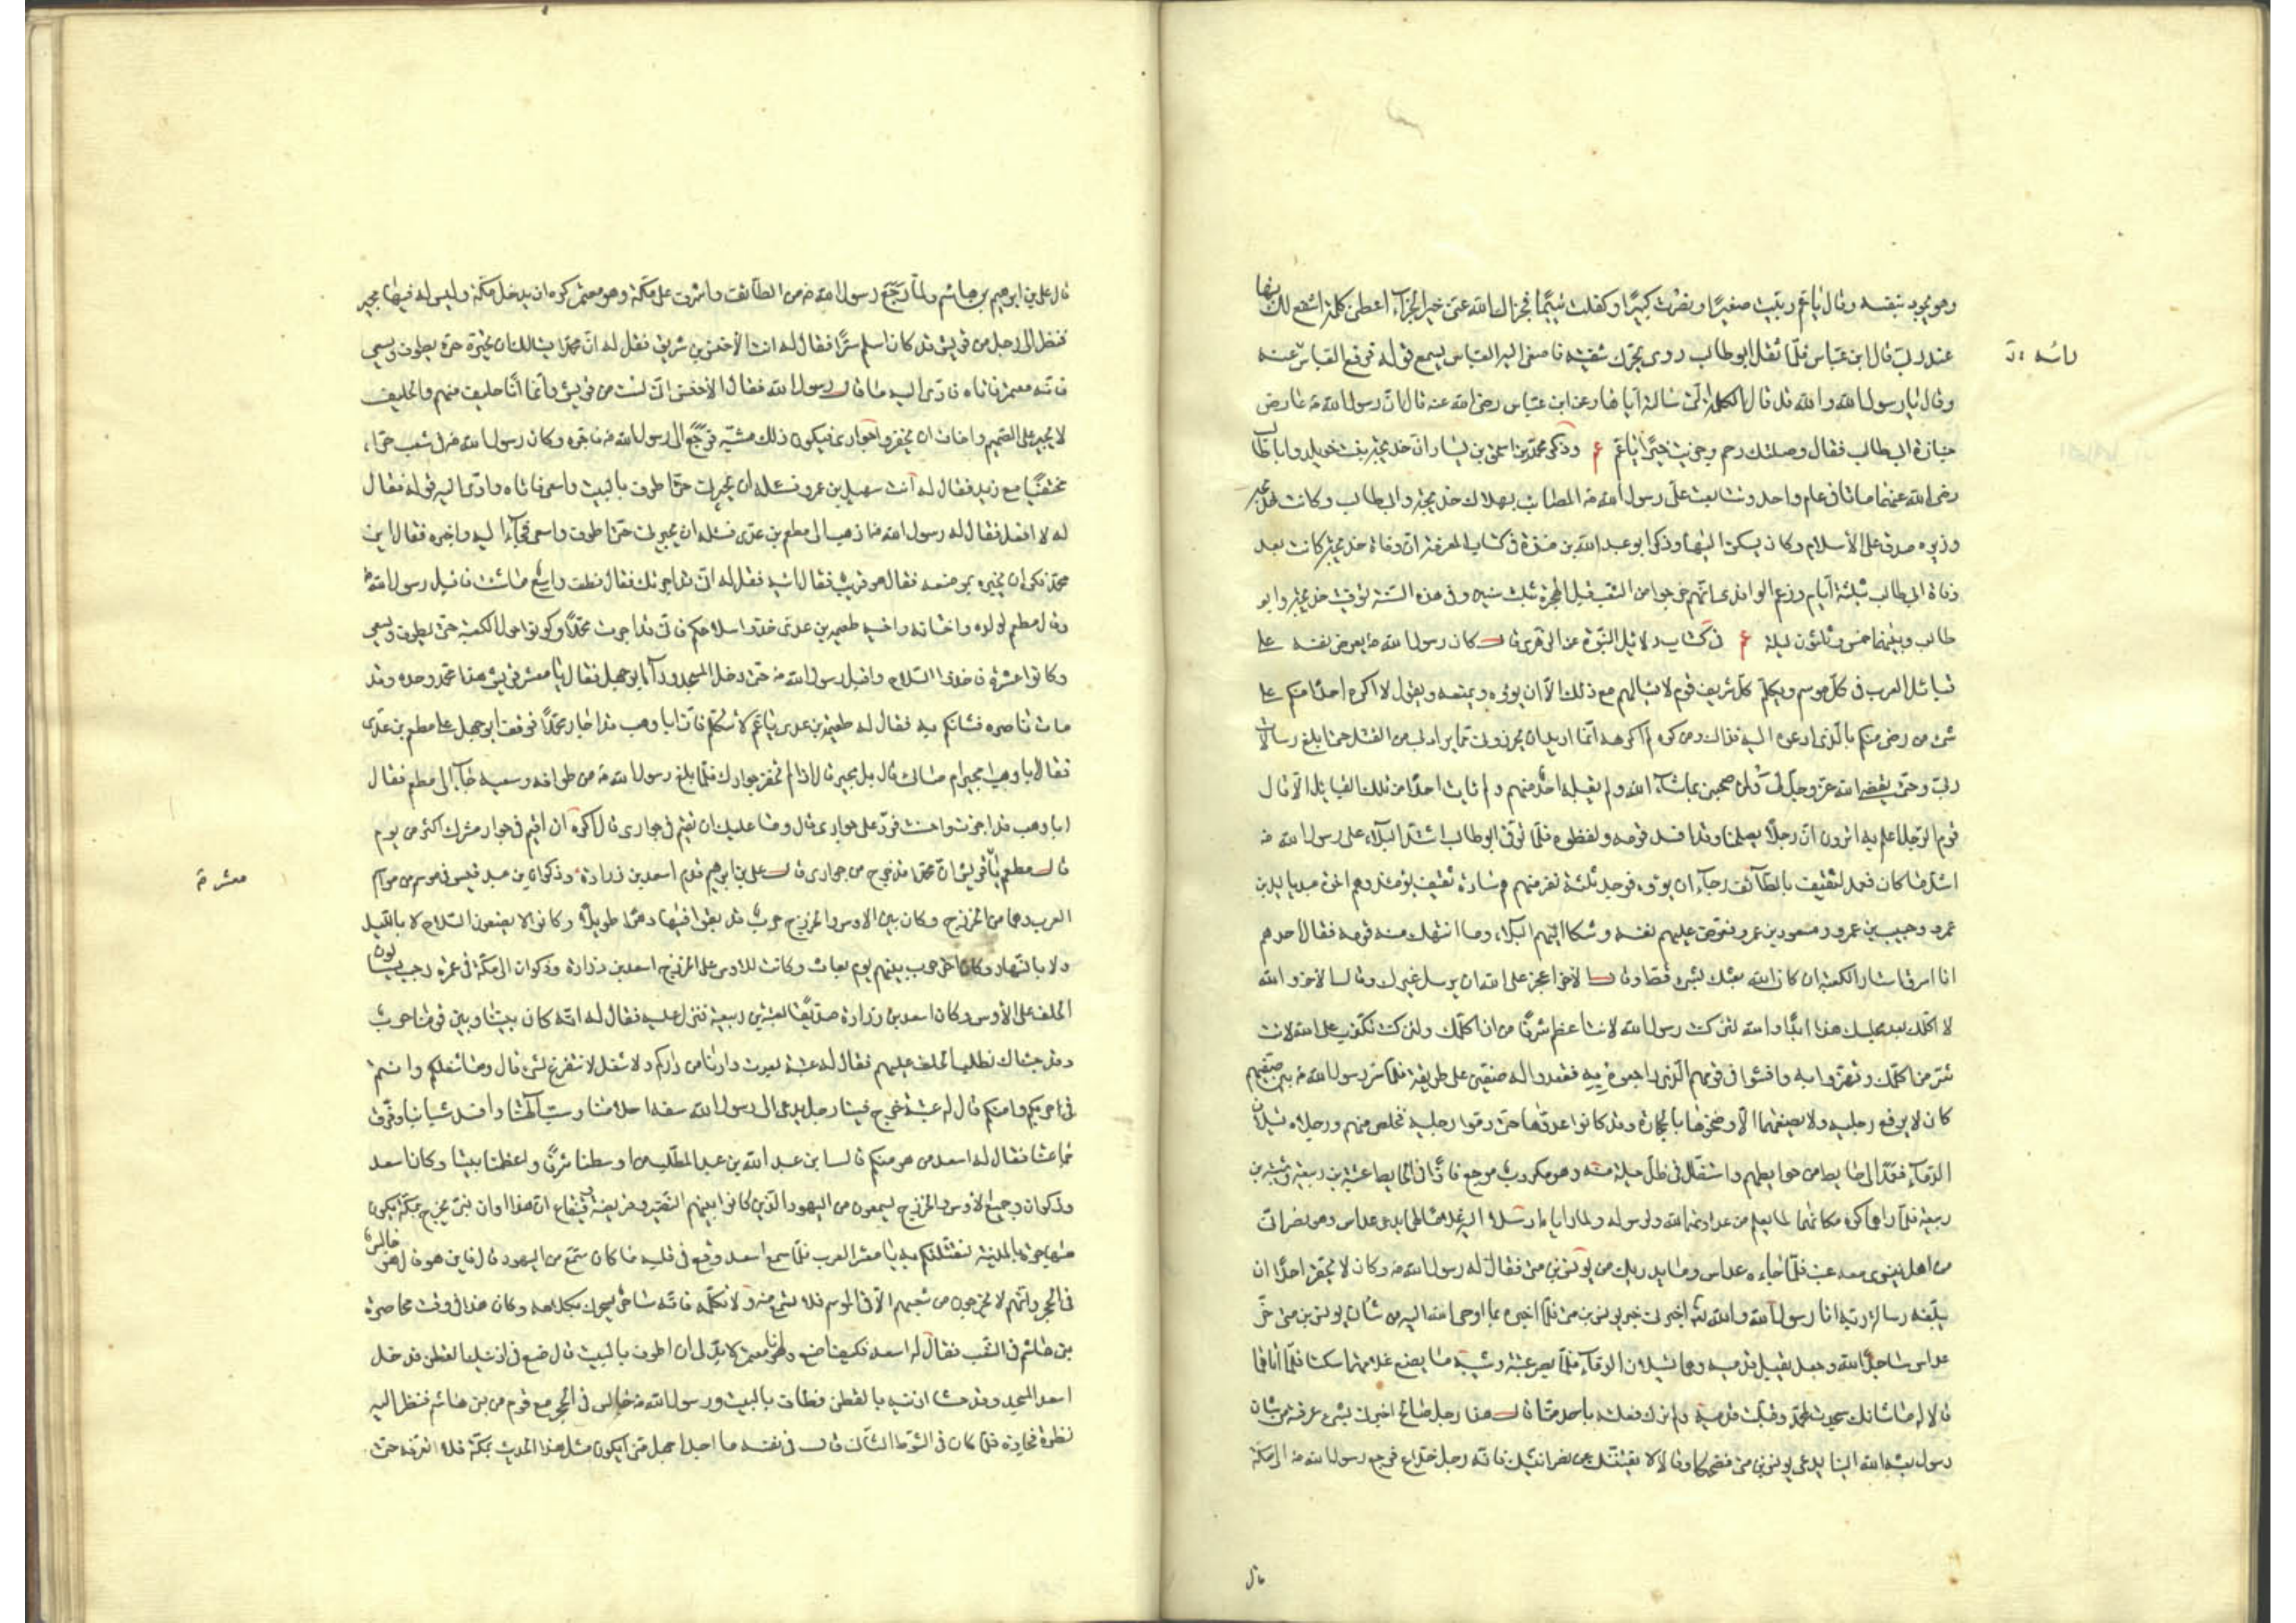 وهو يجود بنفسه وقال يا عم ربيت صغيرا ونصرت كبيرا وكفلت يتيما فجزاك الله عني خير الجزاء اعطني كلمة اشفع لك بها
عند ربي قال ابن عباس فلما ثقل ابو طالب روى يحرك شفتيه فاصغى اليه العباس يسمع قوله فرفع العباس عنه
وقال يا رسول الله والله قد قال الكلمة التي سالته اياها وعن ابن عباس رضى الله عنه قال ان رسول الله ص عارض
جنازة ابى طالب فقال وصلتك رحم وجزيت خيرا يا عم ع وذكر محمد بن اسحق بن يسار ان خديجة بنت خويلد وابا طالب
رضى الله عنهما ماتا فى عام واحد وتتابعت على رسول الله ص المصائب بهلاك خديجة وابى طالب وكانت خديجة
وزيرة صدق على الاسلام وكان يسكن اليها وذكر ابو عبد الله بن منده فى كتاب المعرفة ان وفاة خديجة كانت بعد
وفاة ابى طالب بثلثة ايام وزعم الواقدى انهم خرجوا من الشعب قبل الهجرة بثلث سنين وفى هذه السنة توفيت خديجة وابو
طالب وبينهما خمس وثلثون ليلة ع فى كتاب دلائل النبوة عن الزهرى قال كان رسول الله ص يعرض نفسه على
قبائل العرب فى كل موسم ويكلم كل شريف قوم لا يسالهم مع ذلك الا ان يؤوه ويمنعوه ويقول لا اكره احدا منكم على
شئ من رضى منكم بالذى ادعوه اليه فذاك ومن كره لم اكرهه انما اريد ان تحرزونى مما يراد بى من القتل حتى ابلغ رسالات
ربى وحتى يقضى الله عز وجل لى ولمن صحبنى بما شاء الله ولم يقبله احد منهم ولم يات احدا من تلك القبايل الا قال
قوم الرجل اعلم به اترون ان رجلا يصلحنا وقد افسد قومه ولفظوه فلما توفى ابو طالب اشتد البلاء على رسول الله ص
اشد ما كان فعمد لثقيف بالطائف رجاء ان يؤوه فوجد ثلثة نفر منهم هم سادة ثقيف يومئذ وهم اخوة عبد ياليل بن
عمرو وحبيب بن عمرو ومسعود بن عمرو فعرض عليهم نفسه وشكا اليهم البلاء وما انتهك منه قومه فقال احدهم
انا اسرق استار الكعبة ان كان الله بعثك بشئ قط وقال الاخر اعجز على الله ان يرسل غيرك وقال الاخر والله
لا اكلمك بعد مجلسك هذا ابدا والله لئن كنت رسول الله لانت اعظم شرفا من ان اكلمك ولئن كنت تكذب على الله لانت
شر من اكلمك وتهزؤا به وافشوا فى قومهم الذى راجعوه به فقعدوا له صفين على طريقه فلما مر رسول الله ص بين صفيهم
كان لا يرفع رجليه ولا يضعهما الا رضخوهما بالحجارة وقد كانوا اعدوها حتى ادموا رجليه فخلص منهم ورجلاه تسيلان
الدماء فعمد الى حايط من حوايطهم واستظل فى ظل حبلة منه وهو مكروب موجع فاذا فى الحايط عتبة بن ربيعة وشيبة بن
ربيعة فلما راهما كره مكانهما لما يعلم من عداوتهما لله ولرسوله ولما رايا ارسلا اليه غلاما لهما يدعى عداس وهو نصرانى
من اهل نينوى معه عنب فلما جاءه عداس وما يدريك من يونس بن متى فقال له رسول الله ص وكان لا يحقر احدا ان
يبلغه رسالة ربه انا رسول الله والله تع اخبرنى خبر يونس بن متى فلما اخبره بما اوحى الله اليه من شان يونس بن متى خر
عداس ساجدا لله وجعل يقبل قدميه وهما تسيلان الدماء فلما بصر عتبة وشيبة ما يصنع غلامهما سكتا فلما اتاهما
قالا له ما شانك سجدت لمحمد وقبلت قدميه ولم نرك فعلته باحد منا قال هذا رجل صالح اخبرنى بشئ عرفته من شان
رسول بعثه الله الينا يدعى يونس بن متى فضحكا وقالا لا يفتننك عن نصرانيتك فانه رجل خداع فرجع رسول الله ص الى مكة
قال
قال على بن ابرهيم بن هاشم ولما رجع رسول الله ص من الطائف واشرف على مكة وهو معتمر كره ان يدخل مكة وليس له فيها مجير
فنظر الى رجل من قريش قد كان اسلم سرا فقال له ائت الاخنس بن شريق فقل له ان محمدا يسالك ان تجيره حتى يطوف ويسعى
فانه معتمر فاتاه فادى اليه ما قال رسول الله فقال الاخنس انى لست من قريش وانما انا حليف منهم والحليف
لا يجير على الصميم واخاف ان يخفروا جوارى فيكون ذلك مسبة فرجع الى رسول الله ص فاخبره وكان رسول الله ص فى شعب حراء
مختفيا مع زيد فقال له ائت سهيل بن عمرو فسئله ان يجيرنى حتى اطوف بالبيت واسعى فاتاه وادى اليه قوله فقال
له لا افعل فقال له رسول الله ص اذهب الى مطعم بن عدى فسئله ان يجيرنى حتى اطوف واسعى فجاء اليه واخبره فقال اين
محمد فكره ان يخبره بموضعه فقال هو قريب فقال ائته فقل له انى قد اجرتك فقال فطف واسع ما شئت فاقبل رسول الله ص
وقال مطعم لولده واختانه واخيه طعيمة بن عدى خذوا سلاحكم فانى قد اجرت محمدا وكونوا حول الكعبة حتى يطوف ويسعى
وكانوا عشرة فاخذوا السلاح واقبل رسول الله ص حتى دخل المسجد وراه ابو جهل فقال يا معشر قريش هذا محمد وحده وقد
مات ناصره فشانكم به فقال له طعيمة بن عدى يا عم لا تتكلم فان ابا وهب قد اجار محمدا فوقف ابو جهل على مطعم بن عدى
فقال ابا وهب امجير ام صابئ قال بل مجير قال اذا لم نخفر جوارك فلما بلغ رسول الله ص من طوافه وسعيه جاء الى مطعم فقال
ابا وهب قد اجرت واحسنت فرد على جوارى قال وما عليك ان تقيم فى جوارى قال اكره ان اقيم فى جوار مشرك اكثر من يوم
قال مطعم يا قريش ان محمدا قد خرج من جوارى قال على بن ابرهيم قدم اسعد بن زرارة وذكوان بن عبد قيس فى موسم من مواسم
العرب وهما من الخزرج وكان بين الاوس والخزرج حرب قد بقوا فيها دهرا طويلا وكانوا لا يضعون السلاح لا بالليل
ولا بالنهار وكان اخر حرب بينهم يوم بعاث وكانت للاوس على الخزرج اسعد بن زرارة وذكوان الى مكة فى عمرة رجب يسالون
الحلف على الاوس وكان اسعد بن زرارة صديقا لعتبة بن ربيعة فنزل عليه فقال له انه كان بيننا وبين قومنا حرب
وقد جئناك نطلب الحلف عليهم فقال له عتبة بعدت دارنا من داركم ولنا شغل لا نتفرغ لشئ قال وما شغلكم وانتم
فى حرمكم وامنكم قال له عتبة خرج فينا رجل يدعى انه رسول الله سفه احلامنا وسب الهتنا وافسد شباننا وفرق
جماعتنا فقال له اسعد من هو منكم قال ابن عبد الله بن عبد المطلب من اوسطنا شرفا واعظمنا بيتا وكان اسعد
وذكوان وجميع الاوس والخزرج يسمعون من اليهود الذين كانوا بينهم النضير وقريظة وقينقاع ان هذا اوان نبى يخرج بمكة يكون
مهاجرة بالمدينة لنقتلنكم به يا معشر العرب فلما سمع اسعد وقع فى قلبه ما كان سمع من اليهود قال فاين هو قال هو جالس
فى الحجر وانهم لا يخرجون من شعبهم الا فى الموسم فلا تسمع منه ولا تكلمه فانه ساحر يسحرك بكلامه وكان هذا فى وقت محاصرة
بنى هاشم فى الشعب فقال له اسعد فكيف اصنع وانا معتمر لا بد لى ان اطوف بالبيت قال ضع فى اذنيك القطن فدخل
اسعد المسجد وقد حشا اذنيه بالقطن فطاف بالبيت ورسول الله ص جالس فى الحجر مع قوم من بنى هاشم فنظر اليه
نظرة فجازه فلما كان فى الشوط الثانى قال فى نفسه ما اجد اجهل منى ايكون مثل هذا الحديث بمكة فلا اتعرفه حتى